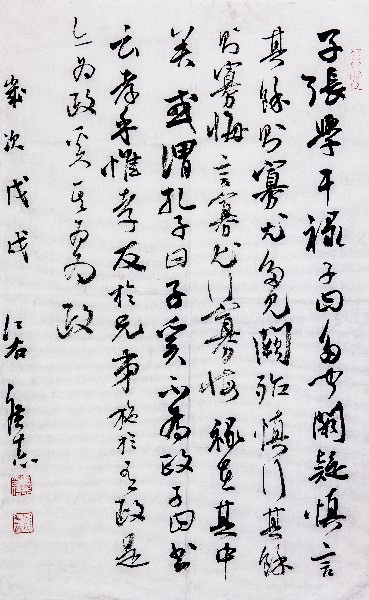 子張學干祿子曰多聞闕疑慎言
其餘則寡尤多見闕殆慎行其餘
則寡悔言寡尤行寡悔祿在其中
矣或謂孔子曰子奚不為政子曰書
云孝乎惟孝友於兄弟施於有政是
亦為政奚其為為政
歲次戊戌 江右